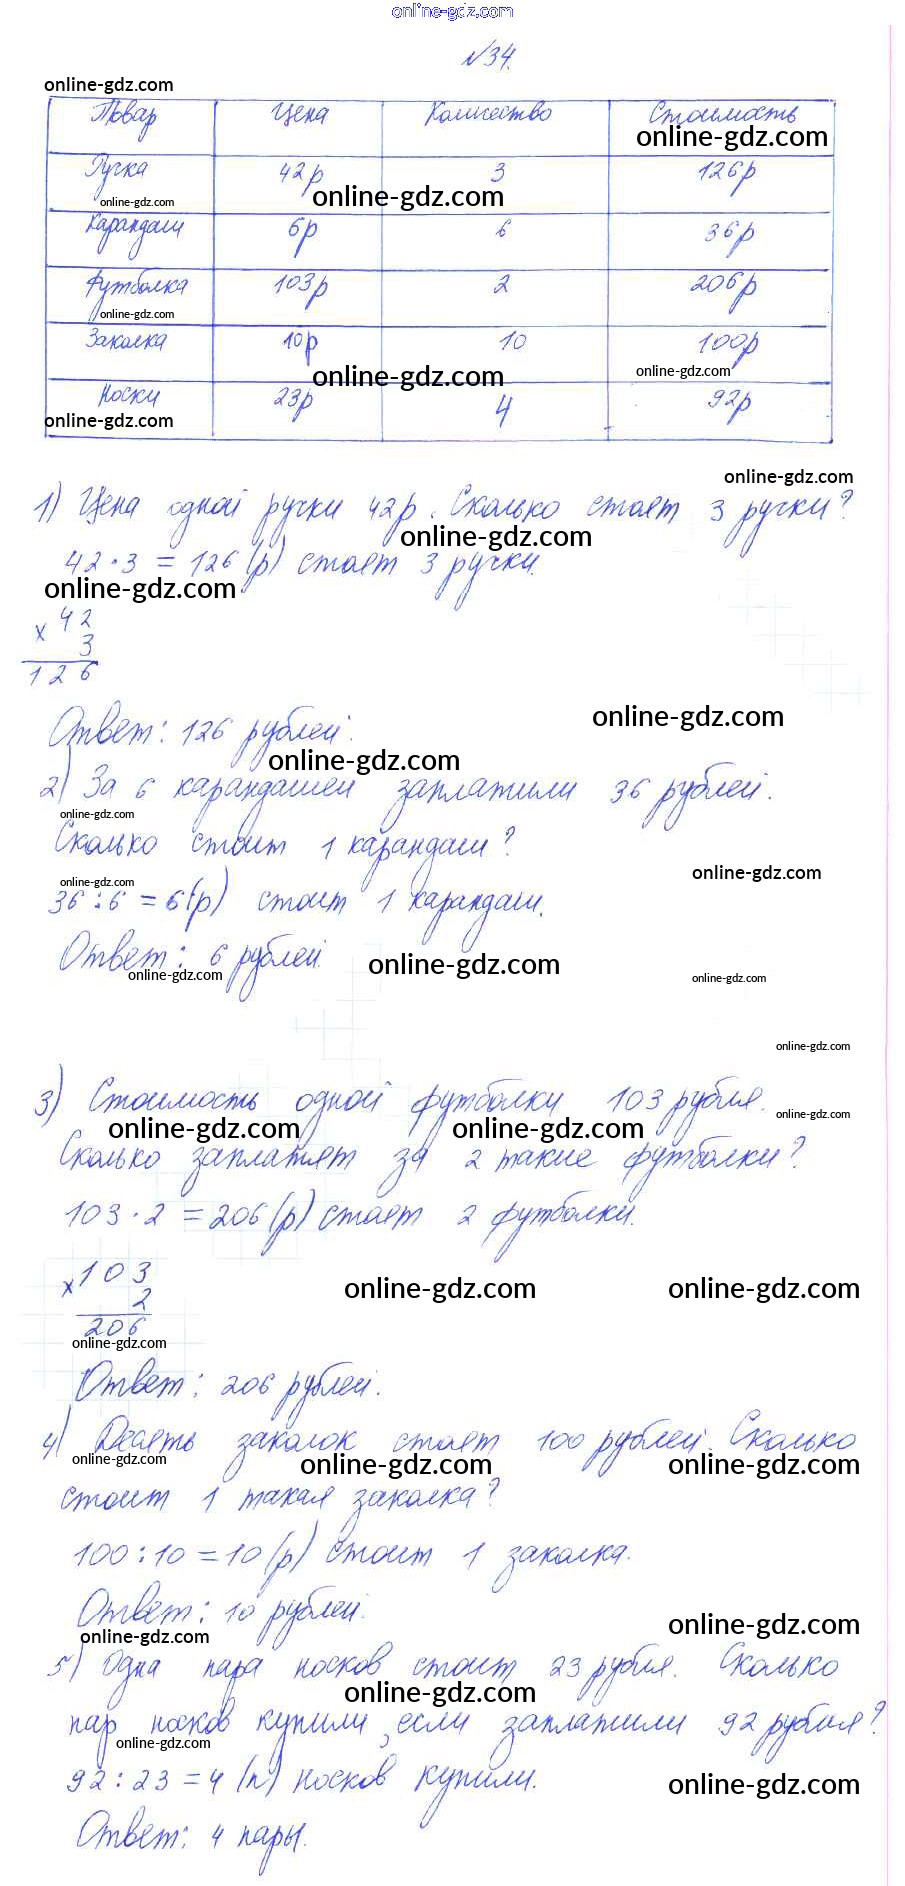 online-gdz.com
№34.
online-gdz.com
Товар Цена Количество Стоимость
online-gdz.com
Ручка 42р 3 126р
online-gdz.com online-gdz.com
Карандаш 6р 6 36р
Футболка 103р 2 206р
online-gdz.com
Заколка 10р 10 100р
online-gdz.com online-gdz.com
Носки 23р 4 92р
online-gdz.com
online-gdz.com
1) Цена одной ручки 42р. Сколько стоят 3 ручки?
online-gdz.com
42·3 = 126 (р) стоят 3 ручки.
online-gdz.com
× 42
3
126
online-gdz.com
Ответ: 126 рублей.
online-gdz.com
2) За 6 карандашей заплатили 36 рублей.
online-gdz.com
Сколько стоит 1 карандаш?
online-gdz.com
online-gdz.com
36:6 = 6(р) стоит 1 карандаш.
Ответ: 6 рублей.
online-gdz.com online-gdz.com online-gdz.com
online-gdz.com
3) Стоимость одной футболки 103 рубля.
online-gdz.com
online-gdz.com online-gdz.com
Сколько заплатят за 2 такие футболки?
103·2 = 206 (р) стоят 2 футболки.
× 103
2
online-gdz.com online-gdz.com
206
online-gdz.com
Ответ: 206 рублей.
4) Десять заколок стоят 100 рублей. Сколько
online-gdz.com online-gdz.com online-gdz.com
стоит 1 такая заколка?
100:10 = 10 (р) стоит 1 заколка.
Ответ: 10 рублей.
online-gdz.com online-gdz.com
5) Одна пара носков стоит 23 рубля. Сколько
online-gdz.com
пар носков купили, если заплатили 92 рубля?
online-gdz.com
92:23 = 4 (п) носков купили.
online-gdz.com
Ответ: 4 пары.